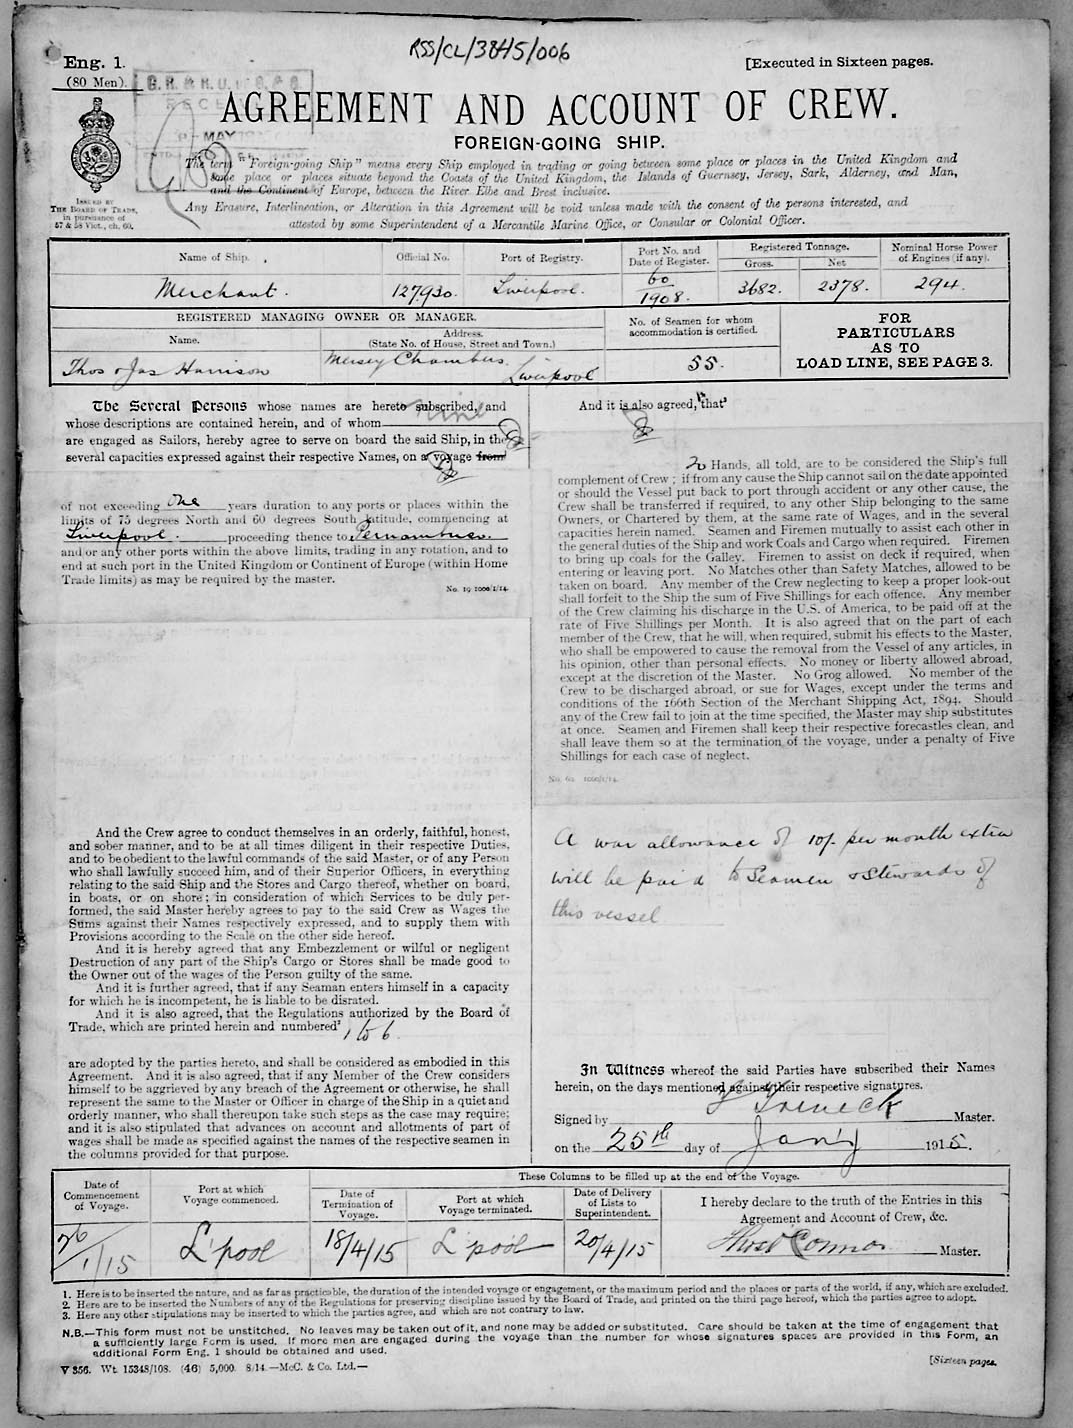 RSS/CL/3845/006
Eng. 1.
(80 Men).
[Executed in Sixteen pages.
RECE
MAY
AGREEMENT AND ACCOUNT OF CREW.
FOREIGN-GOING SHIP.
The term "Foreign-going Ship" means every Ship employed in trading or going between some place or places in the United Kingdom and
some place or places situate beyond the Coasts of the United Kingdom, the Islands of Guernsey, Jersey, Sark, Alderney, and Man,
and the Continent of Europe, between the River Elbe and Brest inclusive.
Any Erasure, Interlineation, or Alteration in this Agreement will be void unless made with the consent of the persons interested, and
attested by some Superintendent of a Mercantile Marine Office, or Consular or Colonial Officer.
ISSUED BY
THE BOARD OF TRADE,
in pursuance of
57 & 58 Vict., ch. 60.
Name of Ship. Official No. Port of Registry. Port No. and Date of Register. Registered Tonnage. Gross. Net Nominal Horse Power of Engines (if any).
Merchant. 127930. Liverpool. 60/1908. 3682. 2378. 294.
REGISTERED MANAGING OWNER OR MANAGER.
Name. Address. (State No. of House, Street and Town.)
No. of Seamen for whom accommodation is certified.
FOR
PARTICULARS
AS TO
LOAD LINE, SEE PAGE 3.
Thos & Jas Harrison Mersey Chambers. Liverpool 55.
The Several Persons whose names are hereto subscribed, and
whose descriptions are contained herein, and of whom nine
are engaged as Sailors, hereby agree to serve on board the said Ship, in the
several capacities expressed against their respective Names, on a voyage from
of not exceeding One years duration to any ports or places within the
limits of 75 degrees North and 60 degrees South latitude, commencing at
Liverpool. proceeding thence to Pernambuco.
and/or any other ports within the above limits, trading in any rotation, and to
end at such port in the United Kingdom or Continent of Europe (within Home
Trade limits) as may be required by the master.
No. 19 1000/1/14.
And the Crew agree to conduct themselves in an orderly, faithful, honest,
and sober manner, and to be at all times diligent in their respective Duties,
and to be obedient to the lawful commands of the said Master, or of any Person
who shall lawfully succeed him, and of their Superior Officers, in everything
relating to the said Ship and the Stores and Cargo thereof, whether on board,
in boats, or on shore; in consideration of which Services to be duly per-
formed, the said Master hereby agrees to pay to the said Crew as Wages the
Sums against their Names respectively expressed, and to supply them with
Provisions according to the Scale on the other side hereof.
And it is hereby agreed that any Embezzlement or wilful or negligent
Destruction of any part of the Ship's Cargo or Stores shall be made good to
the Owner out of the wages of the Person guilty of the same.
And it is further agreed, that if any Seaman enters himself in a capacity
for which he is incompetent, he is liable to be disrated.
And it is also agreed, that the Regulations authorized by the Board of
Trade, which are printed herein and numbered² 1 to 6
are adopted by the parties hereto, and shall be considered as embodied in this
Agreement. And it is also agreed, that if any Member of the Crew considers
himself to be aggrieved by any breach of the Agreement or otherwise, he shall
represent the same to the Master or Officer in charge of the Ship in a quiet and
orderly manner, who shall thereupon take such steps as the case may require;
and it is also stipulated that advances on account and allotments of part of
wages shall be made as specified against the names of the respective seamen in
the columns provided for that purpose.
And it is also agreed, that³
Hands, all told, are to be considered the Ship's full
complement of Crew; if from any cause the Ship cannot sail on the date appointed
or should the Vessel put back to port through accident or any other cause, the
Crew shall be transferred if required, to any other Ship belonging to the same
Owners, or Chartered by them, at the same rate of Wages, and in the several
capacities herein named. Seamen and Firemen mutually to assist each other in
the general duties of the Ship and work Coals and Cargo when required. Firemen
to bring up coals for the Galley. Firemen to assist on deck if required, when
entering or leaving port. No Matches other than Safety Matches, allowed to be
taken on board. Any member of the Crew neglecting to keep a proper look-out
shall forfeit to the Ship the sum of Five Shillings for each offence. Any member
of the Crew claiming his discharge in the U.S. of America, to be paid off at the
rate of Five Shillings per Month. It is also agreed that on the part of each
member of the Crew, that he will, when required, submit his effects to the Master,
who shall be empowered to cause the removal from the Vessel of any articles, in
his opinion, other than personal effects. No money or liberty allowed abroad,
except at the discretion of the Master. No Grog allowed. No member of the
Crew to be discharged abroad, or sue for Wages, except under the terms and
conditions of the 166th Section of the Merchant Shipping Act, 1894. Should
any of the Crew fail to join at the time specified, the Master may ship substitutes
at once. Seamen and Firemen shall keep their respective forecastles clean, and
shall leave them so at the termination of the voyage, under a penalty of Five
Shillings for each case of neglect.
A war allowance of 10/- per month extra
will be paid to Seamen & Stewards of
this vessel
In Witness whereof the said Parties have subscribed their Names
herein, on the days mentioned against their respective signatures.
Signed by Master.
on the 25th day of Jan'y 1915.
These Columns to be filled up at the end of the Voyage.
Date of Commencement of Voyage. Port at which Voyage commenced. Date of Termination of Voyage. Port at which Voyage terminated. Date of Delivery of Lists to Superintendent. I hereby declare to the truth of the Entries in this Agreement and Account of Crew, &c.
26/1/15 L'pool 18/4/15 L'pool 20/4/15 Thos O'Connor Master.
1. Here is to be inserted the nature, and as far as practicable, the duration of the intended voyage or engagement, or the maximum period and the places or parts of the world, if any, which are excluded.
2. Here are to be inserted the Numbers of any of the Regulations for preserving discipline issued by the Board of Trade, and printed on the third page hereof, which the parties agree to adopt.
3. Here any other stipulations may be inserted to which the parties agree, and which are not contrary to law.
N.B.—This form must not be unstitched. No leaves may be taken out of it, and none may be added or substituted. Care should be taken at the time of engagement that
a sufficiently large Form is used. If more men are engaged during the voyage than the number for whose signatures spaces are provided in this Form, an
additional Form Eng. 1 should be obtained and used.
V 356. Wt. 15348/108. (46) 5,000. 8/14.—McC. & Co. Ltd.—
[Sixteen pages.